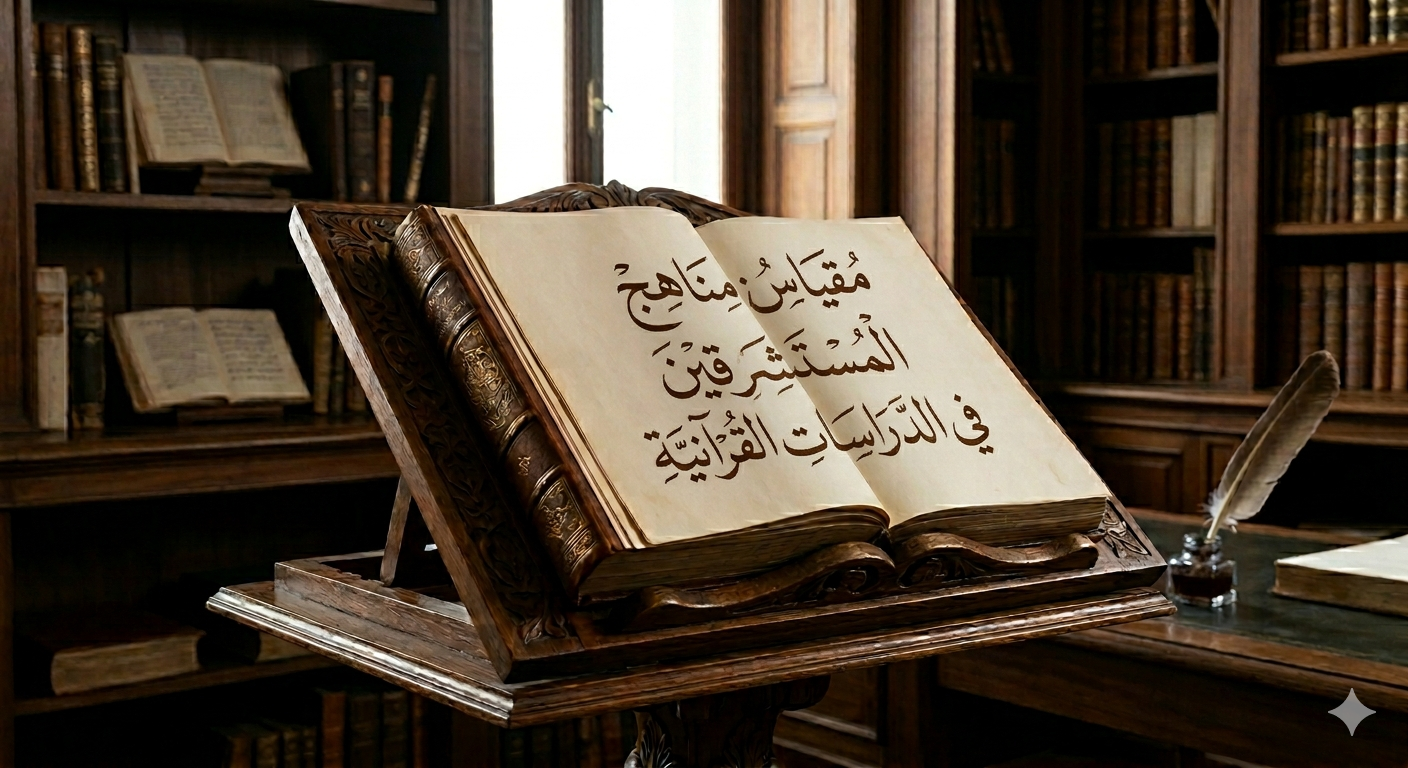 مُقيَاسُ مِنَاهِجْ
الْمُسْتَشِرقِيْنَ
في الدَّرَاسَاتِ القُرْآنيَّةِ